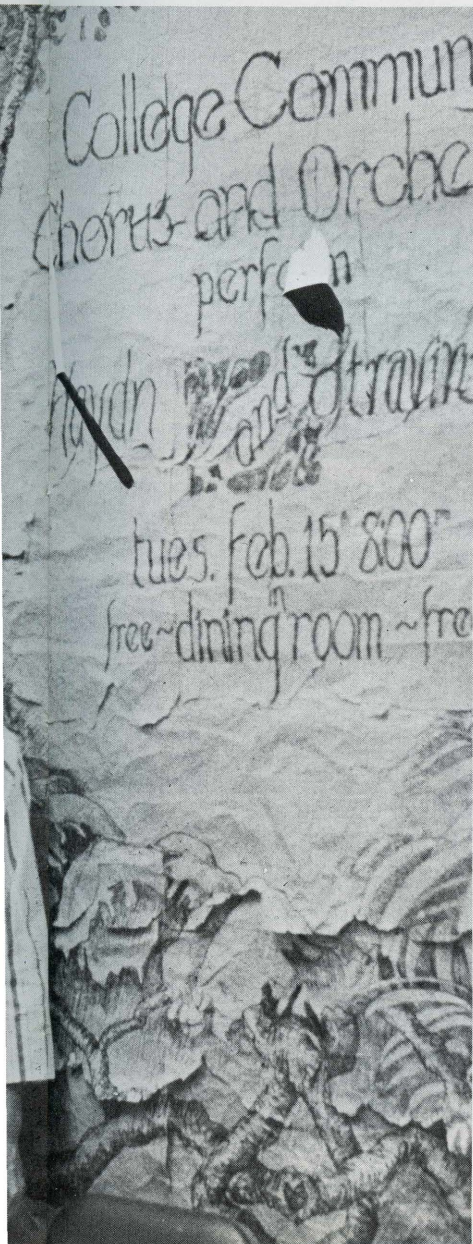 College Commun
Chorus and Orche
perform
Haydn and Stravin
tues. Feb. 15 8:00
in
free~dining room ~free